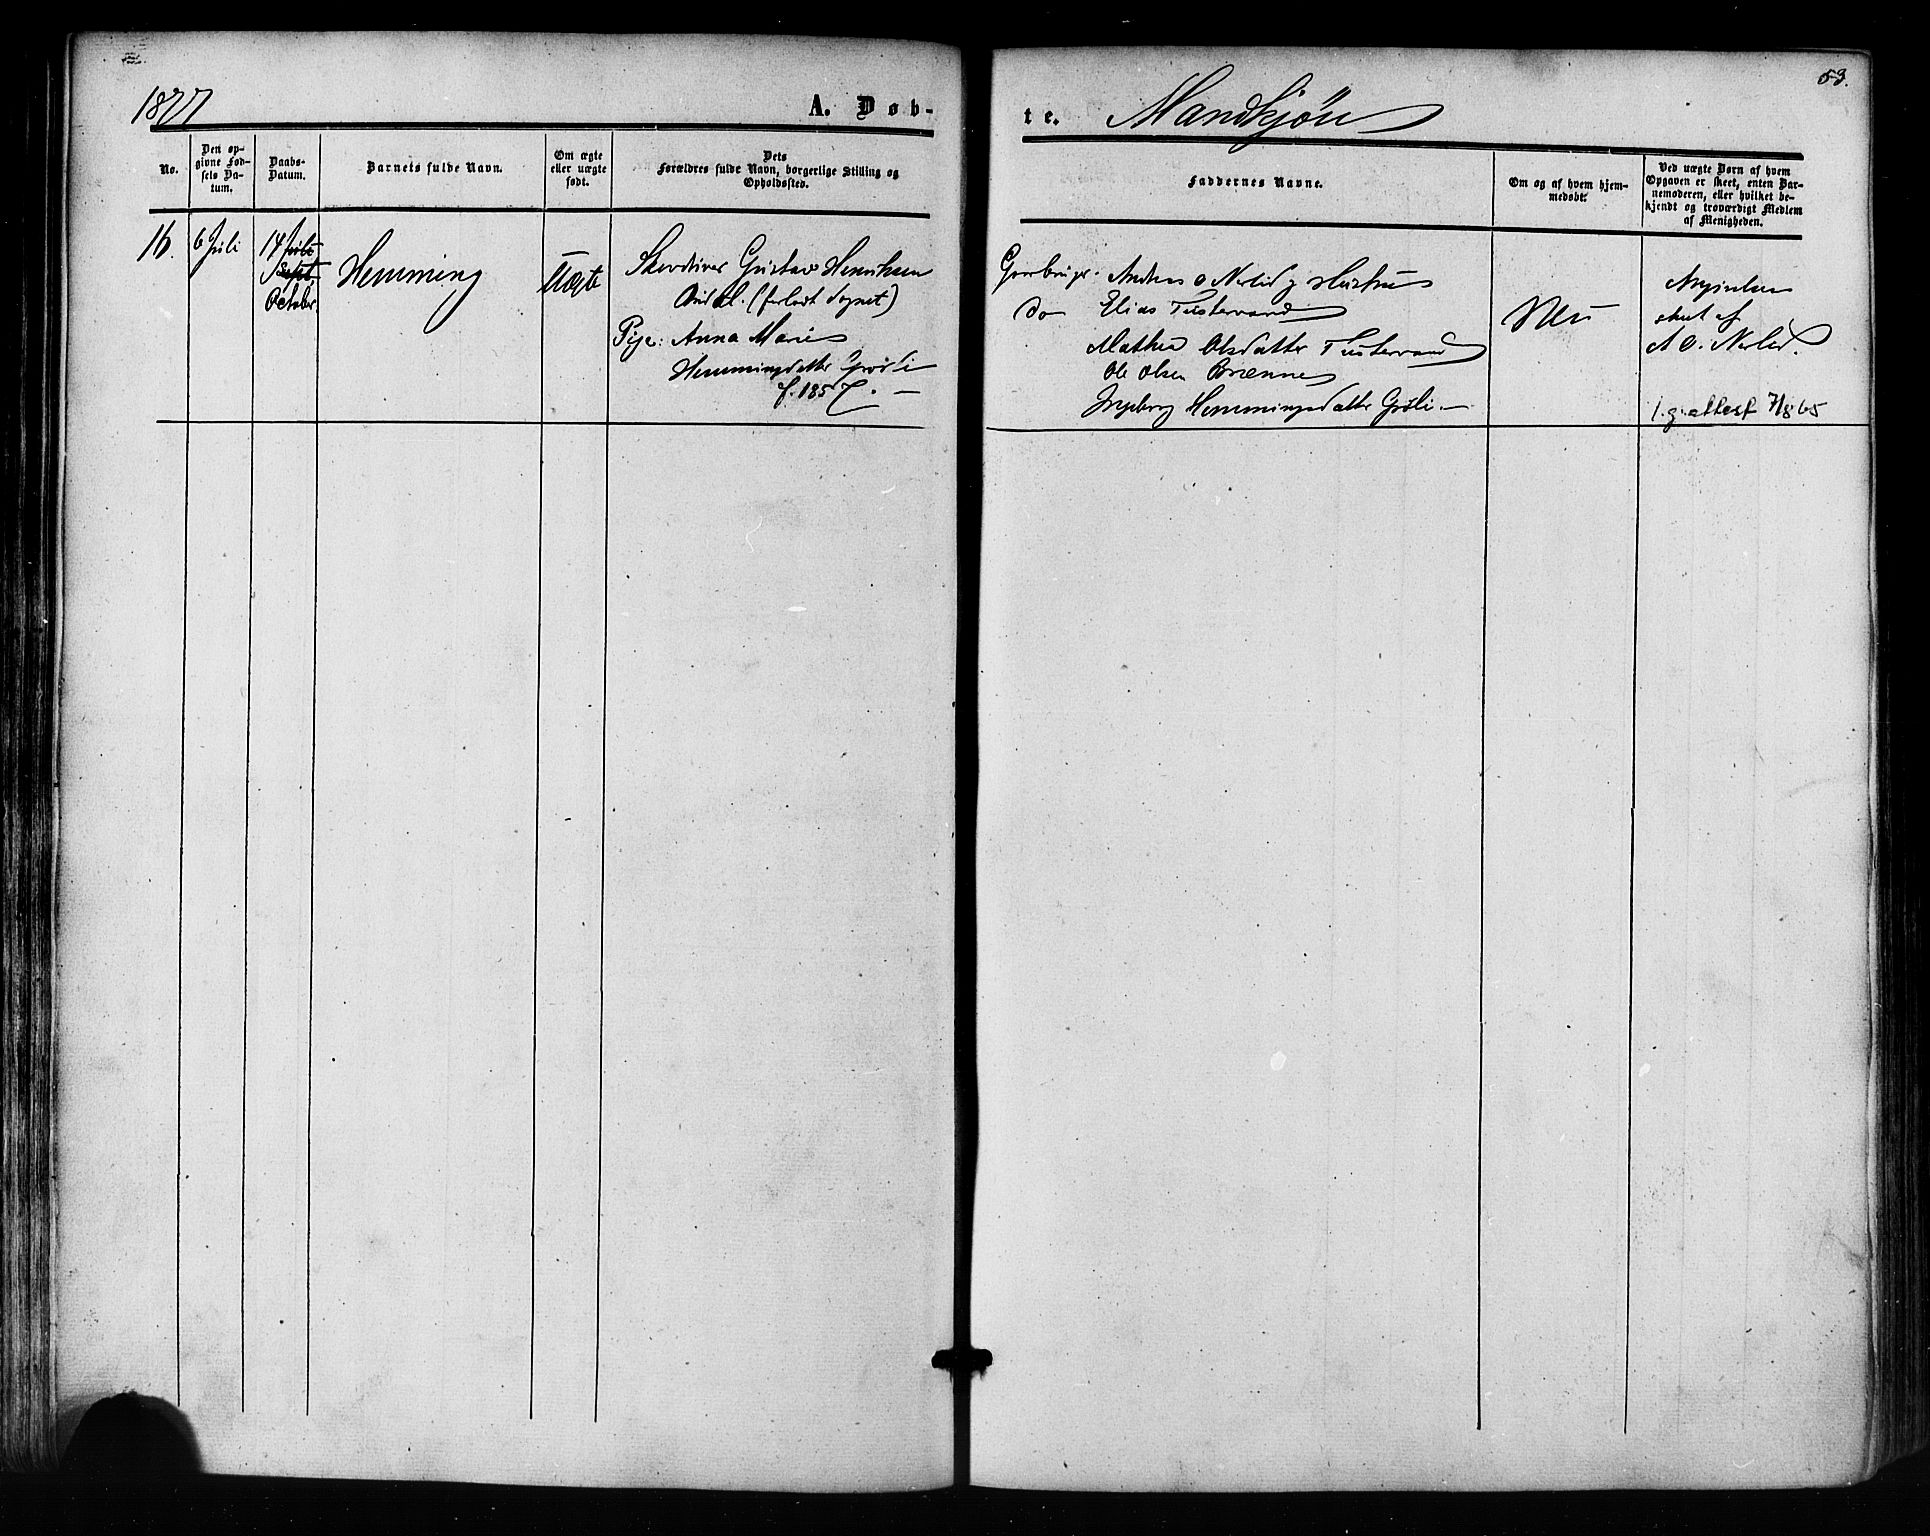 53.
1877
A. Døb-
te. Mandkjøn
No.
Den op-
givne Fød-
sels Da-
tum.
Daabs-
Datum.
Barnets fulde Navn.
Om ægte
eller uægte
født.
Dets
Forældres fulde Navn, borgerlige Stilling og
Opholdssted.
Faddernes Navne.
Om og af hvem hjem-
medøbt.
Ved uægte Børn af hvem
Opgaven er skeet, enten Bar-
nemoderen, eller hvilket be-
kjendt og troværdigt Medlem
af Menigheden.
16.
6 Juli
14 Juli
Sept.
October.
Hemming
Uægte
Gustav Henriksen
(forladt Sognet)
Pige: Anna Marie
Hemmingsdatter Grøli
f. 1857. —
Gaardbruger. Andreas O Nerlid og Hustru
Do Elias Tustervand
Mathea Olsdatter Tustervand
Ole Olsen Brænne
Ingeborg Hemmingsdatter Grøli —
Nei
Angivelsen
skeet af
A O. Nerlid.
l.g. attest 7/8 65